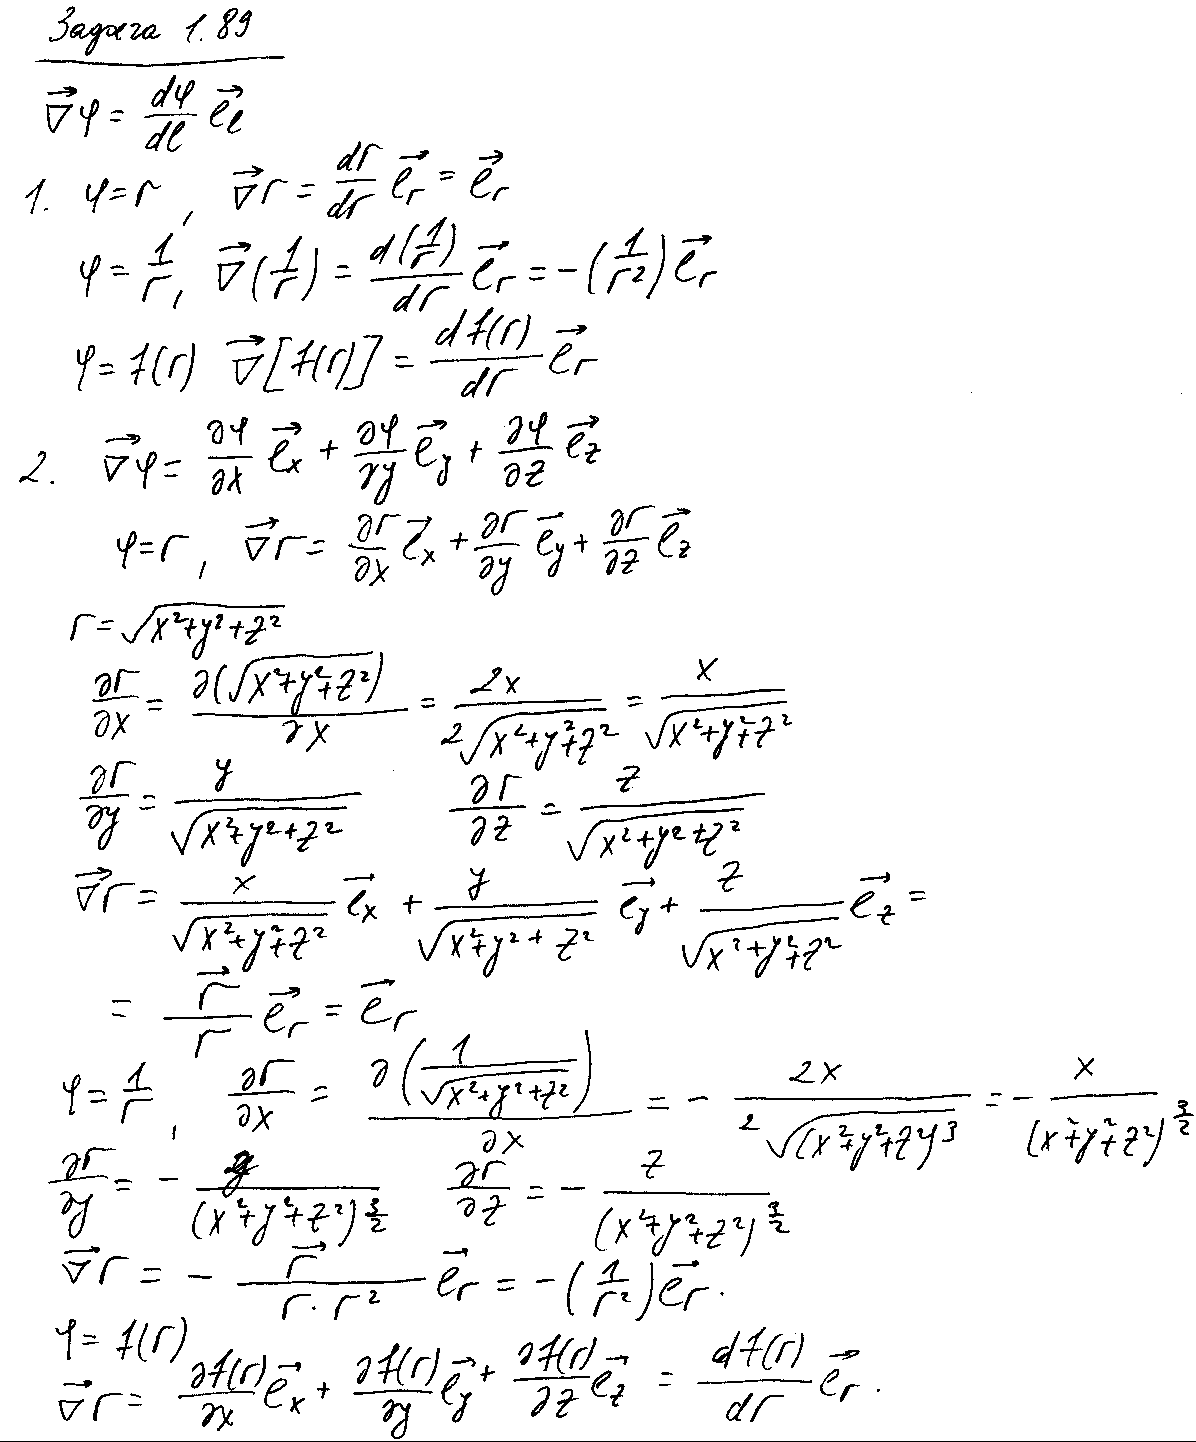 Задача 1.89
$\vec{\nabla}\varphi = \frac{d\varphi}{dl}\vec{e}_l$
1. $\varphi = r$, $\vec{\nabla}r = \frac{dr}{dr}\vec{e}_r = \vec{e}_r$
$\varphi = \frac{1}{r}$, $\vec{\nabla}(\frac{1}{r}) = \frac{d(\frac{1}{r})}{dr}\vec{e}_r = -(\frac{1}{r^2})\vec{e}_r$
$\varphi = f(r)$ $\vec{\nabla}[f(r)] = \frac{df(r)}{dr}\vec{e}_r$
2. $\vec{\nabla}\varphi = \frac{\partial\varphi}{\partial x}\vec{e}_x + \frac{\partial\varphi}{\partial y}\vec{e}_y + \frac{\partial\varphi}{\partial z}\vec{e}_z$
$\varphi = r$, $\vec{\nabla}r = \frac{\partial r}{\partial x}\vec{e}_x + \frac{\partial r}{\partial y}\vec{e}_y + \frac{\partial r}{\partial z}\vec{e}_z$
$r = \sqrt{x^2+y^2+z^2}$
$\frac{\partial r}{\partial x} = \frac{\partial(\sqrt{x^2+y^2+z^2})}{\partial x} = \frac{2x}{2\sqrt{x^2+y^2+z^2}} = \frac{x}{\sqrt{x^2+y^2+z^2}}$
$\frac{\partial r}{\partial y} = \frac{y}{\sqrt{x^2+y^2+z^2}}$ $\frac{\partial r}{\partial z} = \frac{z}{\sqrt{x^2+y^2+z^2}}$
$\vec{\nabla}r = \frac{x}{\sqrt{x^2+y^2+z^2}}\vec{e}_x + \frac{y}{\sqrt{x^2+y^2+z^2}}\vec{e}_y + \frac{z}{\sqrt{x^2+y^2+z^2}}\vec{e}_z =$
$= \frac{\vec{r}}{r}\vec{e}_r = \vec{e}_r$
$\varphi = \frac{1}{r}$, $\frac{\partial r}{\partial x} = \frac{\partial(\frac{1}{\sqrt{x^2+y^2+z^2}})}{\partial x} = -\frac{2x}{2\sqrt{(x^2+y^2+z^2)^3}} = -\frac{x}{(x^2+y^2+z^2)^{\frac{3}{2}}}$
$\frac{\partial r}{\partial y} = -\frac{y}{(x^2+y^2+z^2)^{\frac{3}{2}}}$ $\frac{\partial r}{\partial z} = -\frac{z}{(x^2+y^2+z^2)^{\frac{3}{2}}}$
$\vec{\nabla}r = -\frac{\vec{r}}{r \cdot r^2}\vec{e}_r = -(\frac{1}{r^2})\vec{e}_r.$
$\varphi = f(r)$
$\vec{\nabla}r = \frac{\partial f(r)}{\partial x}\vec{e}_x + \frac{\partial f(r)}{\partial y}\vec{e}_y + \frac{\partial f(r)}{\partial z}\vec{e}_z = \frac{df(r)}{dr}\vec{e}_r.$